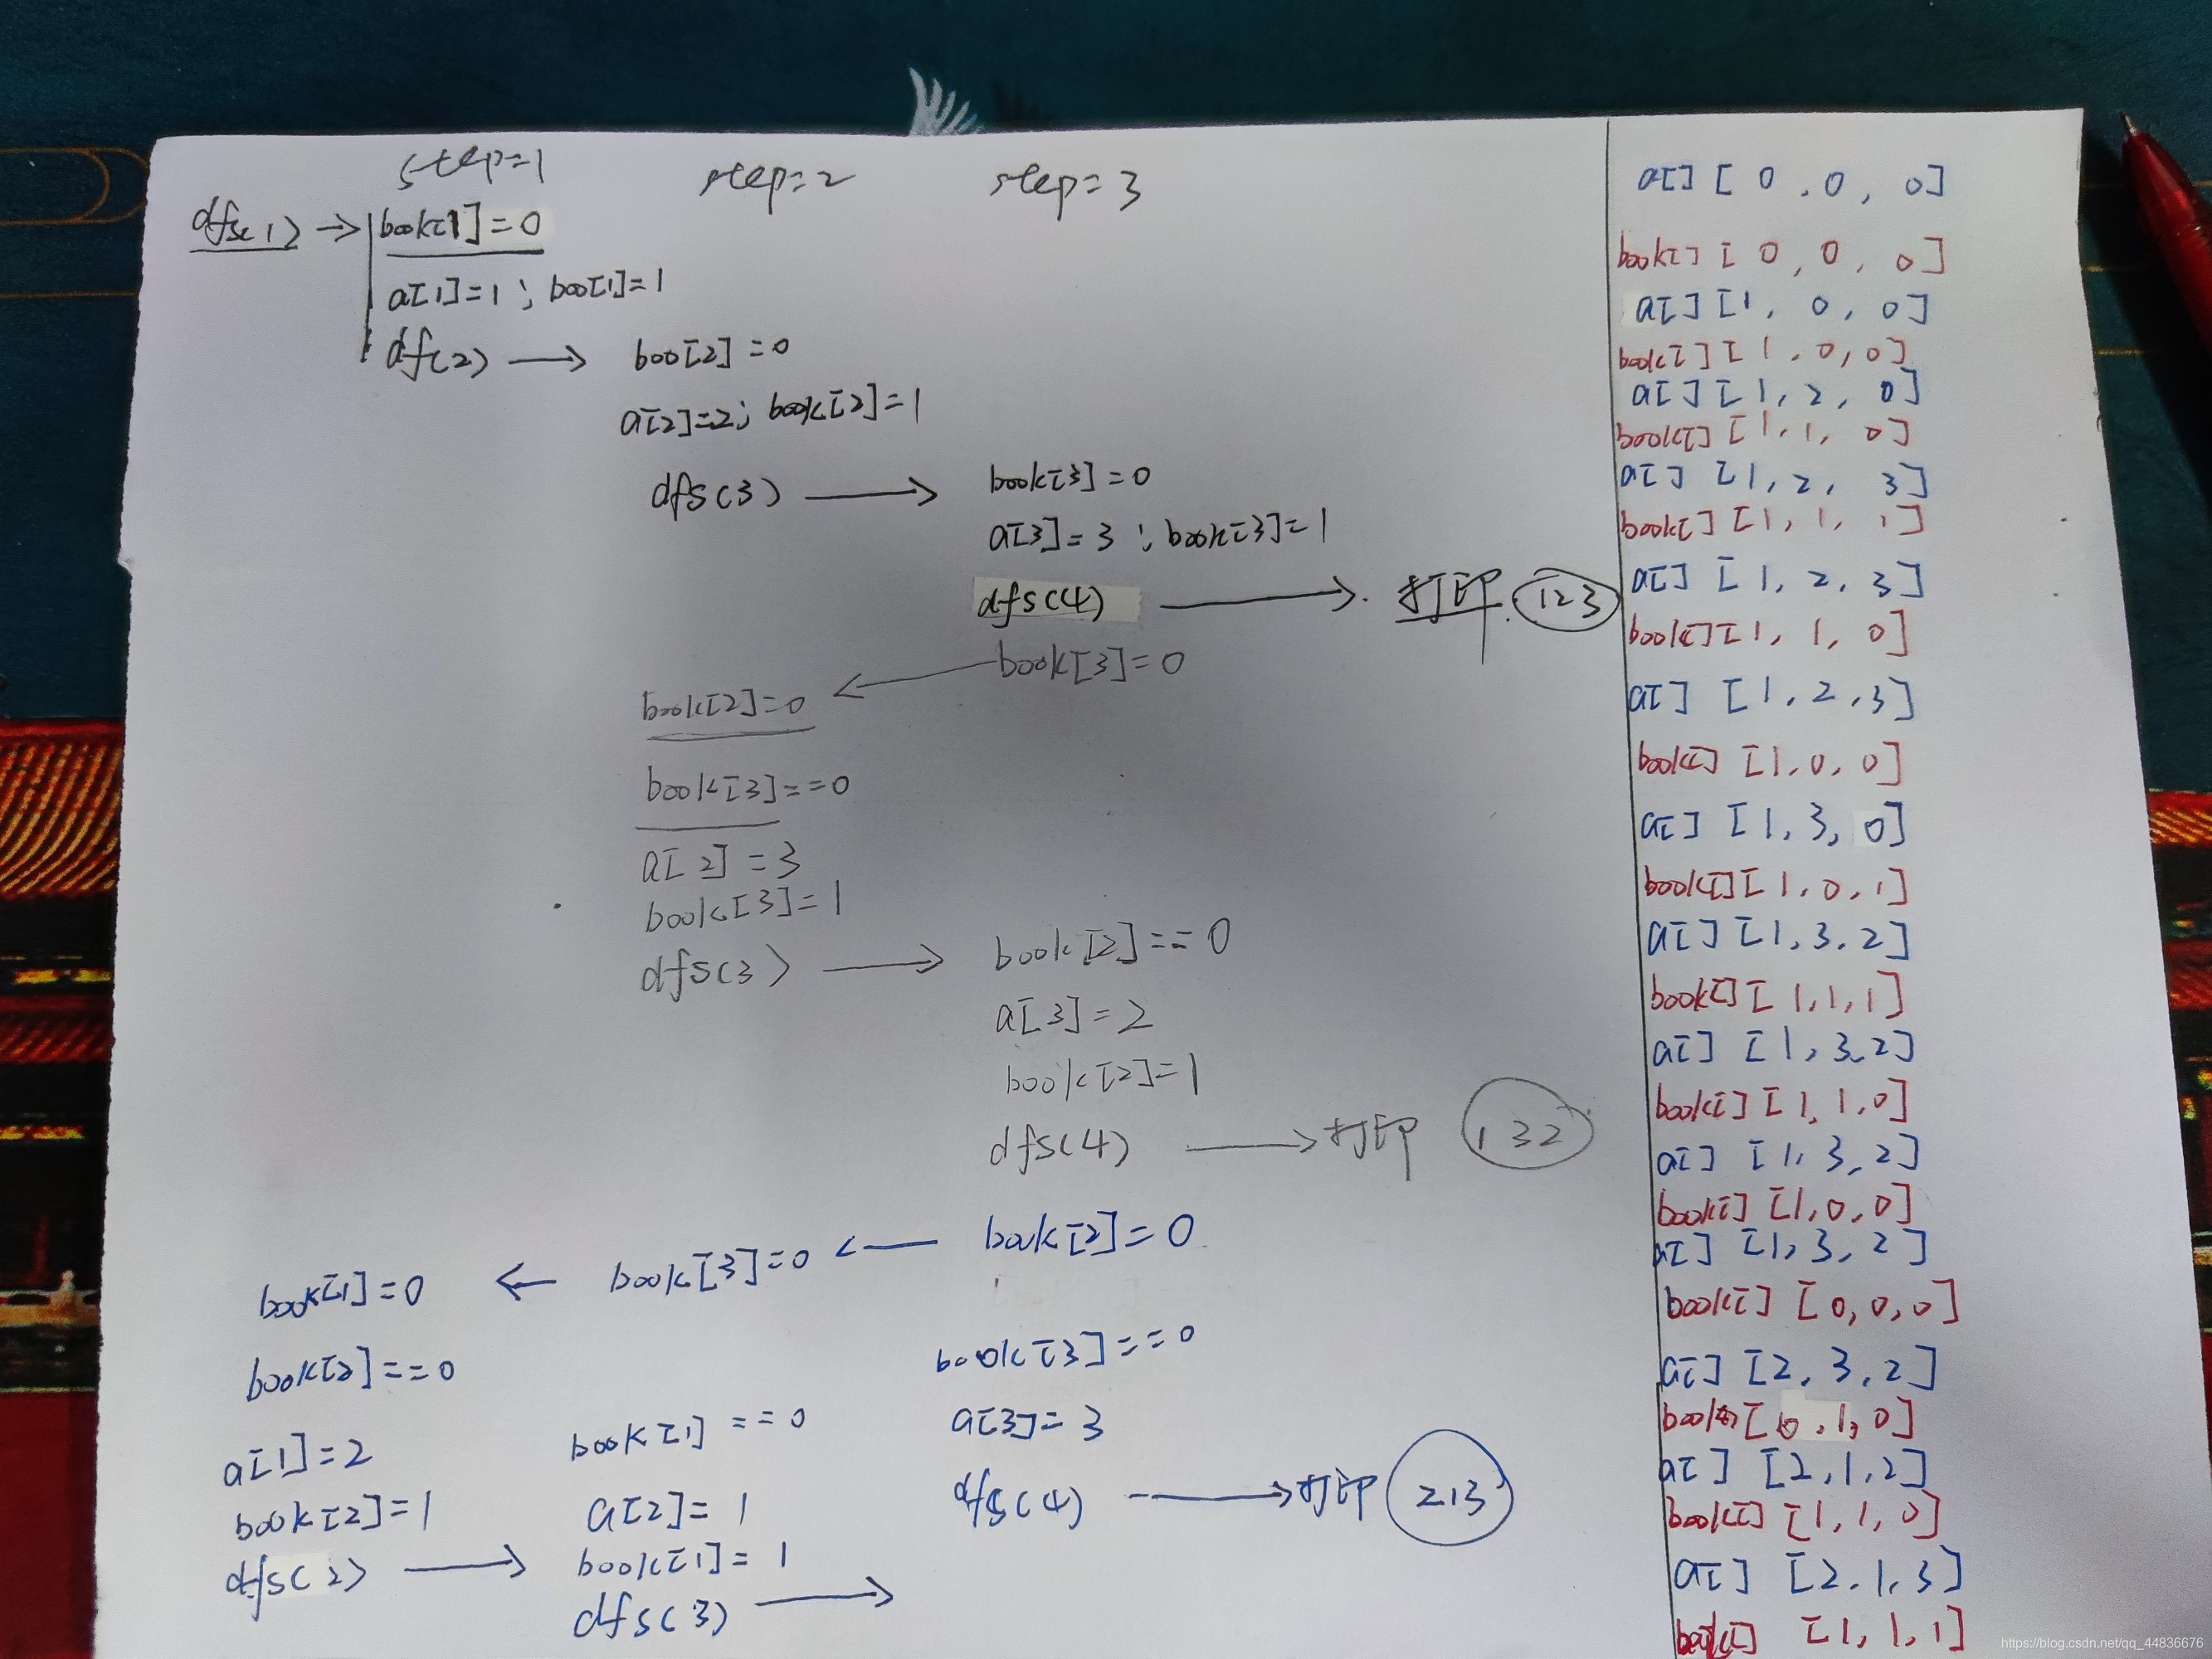 step=1 step=2 step=3
dfs(1) → book[1]=0
a[1]=1 ; boo[1]=1
df(2) → boo[2]=0
a[2]=2; book[2]=1
dfs(3) → book[3]=0
a[3]=3 ; book[3]=1
dfs(4) → 打印 123
book[2]=0 ← book[3]=0
book[3]==0
a[2]=3
book[3]=1
dfs(3) → book[2]==0
a[3]=2
book[2]=1
dfs(4) → 打印 132
book[1]=0 ← book[3]=0 ← book[2]=0
book[2]==0
a[1]=2
book[2]=1
dfs(2) →
book[1]==0
a[2]=1
book[1]=1
dfs(3) →
book[3]==0
a[3]=3
dfs(4) → 打印 213
a[] [0,0,0]
book[] [0,0,0]
a[] [1,0,0]
book[] [1,0,0]
a[] [1,2,0]
book[] [1,1,0]
a[] [1,2,3]
book[] [1,1,1]
a[] [1,2,3]
book[] [1,1,0]
a[] [1,2,3]
book[] [1,0,0]
a[] [1,3,0]
book[] [1,0,1]
a[] [1,3,2]
book[] [1,1,1]
a[] [1,3,2]
book[] [1,1,0]
a[] [1,3,2]
book[] [1,0,0]
a[] [1,3,2]
book[] [0,0,0]
a[] [2,3,2]
book[] [0,1,0]
a[] [2,1,2]
book[] [1,1,0]
a[] [2,1,3]
book[] [1,1,1]
https://blog.csdn.net/qq_44836676